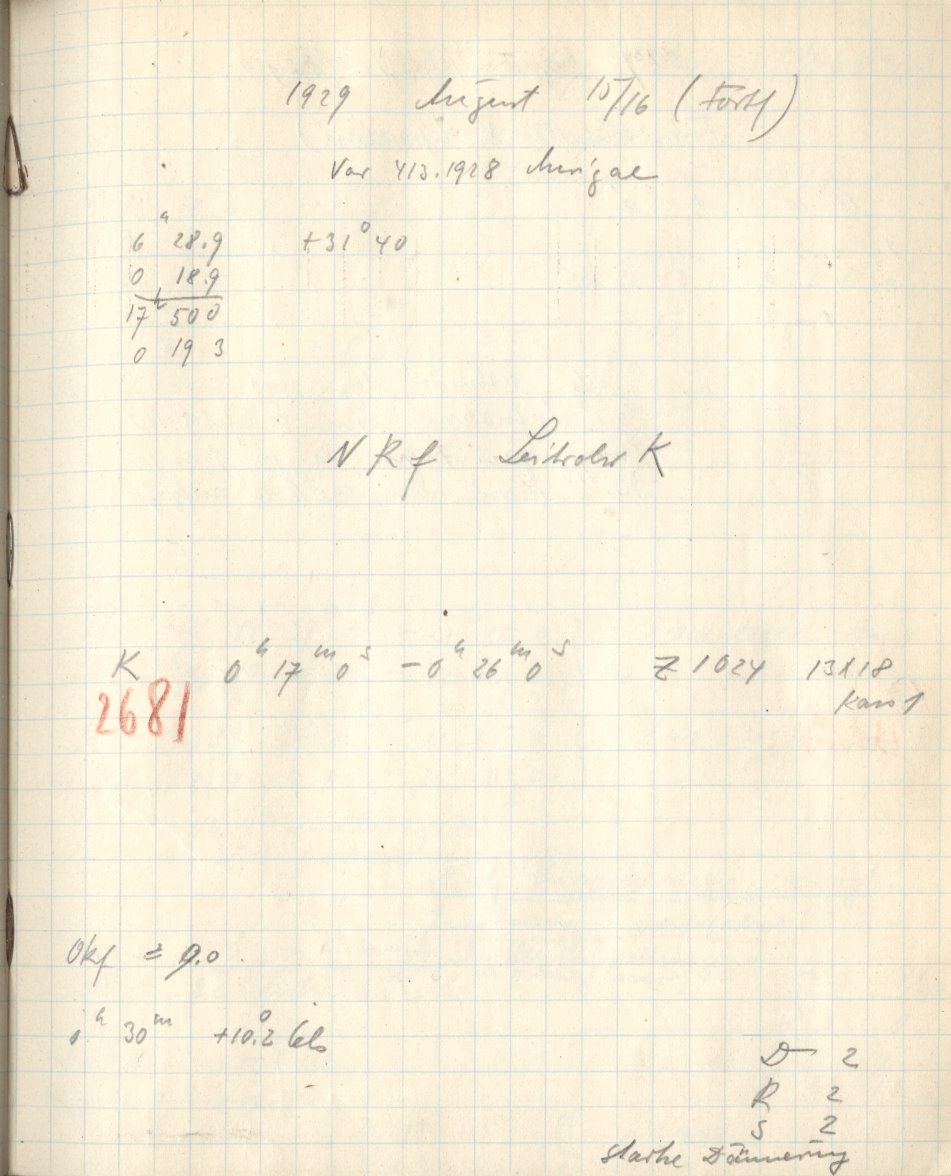 1929 August 15/16 (Forts)
Var 413.1928 Aurigae
6h 28.9 +31° 40
0 18.9
17h 50 0
0 19 3
N R f Leitrohr K
K 0h 17m 0s – 0h 26m 0s Z 1024 13X18
2681
Okf = 9.0
0h 30m +10.°2 Cels
D 2
R 2
S 2
starke Dämmerung